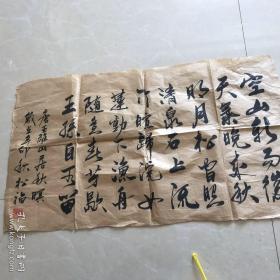 空山新雨後
天氣晚来秋
明月松間照
清泉石上流
竹喧歸浣女
蓮動下漁舟
隨意春芳歇
王孫自可留
唐王維山居秋暝